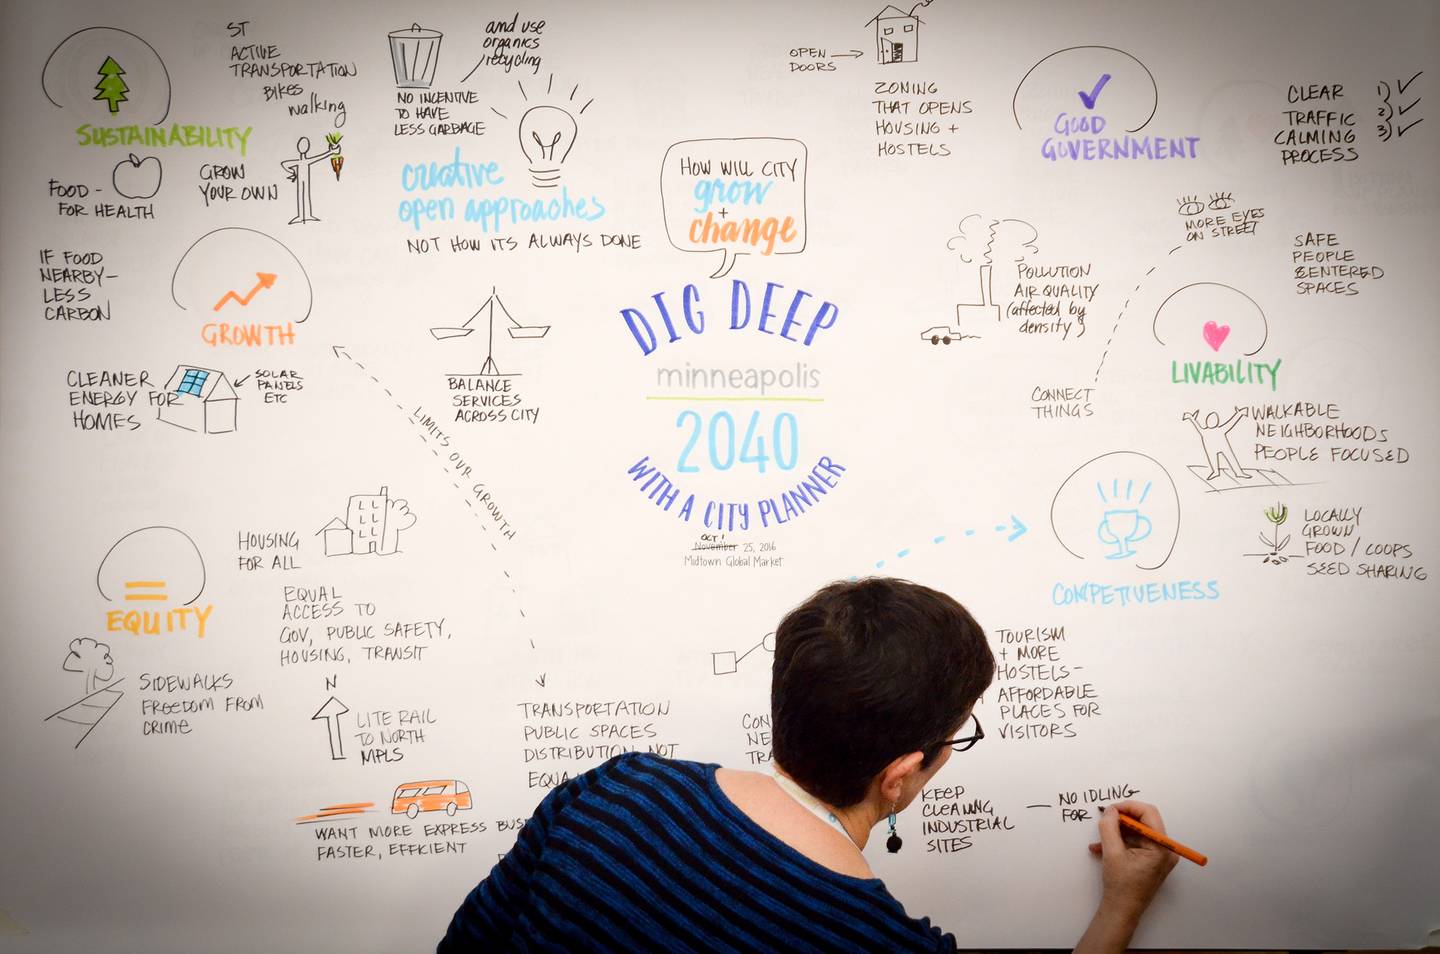 ST
ACTIVE
TRANSPORTATION
BIKES
walking
SUSTAINABILITY
FOOD -
FOR HEALTH
GROW
YOUR OWN
IF FOOD
NEARBY -
LESS
CARBON
GROWTH
CLEANER
ENERGY FOR
HOMES
SOLAR
PANELS
ETC
and use
organics
recycling
NO INCENTIVE
TO HAVE
LESS GARBAGE
creative
open approaches
NOT HOW ITS ALWAYS DONE
BALANCE
SERVICES
ACROSS CITY
LIMITS OUR GROWTH
HOW WILL CITY
grow
+
change
DIG DEEP
minneapolis
2040
WITH A CITY PLANNER
OCT
November 25, 2016
Midtown Global Market
OPEN
DOORS
ZONING
THAT OPENS
HOUSING +
HOSTELS
GOOD
GOVERNMENT
CLEAR 1) ✓
TRAFFIC 2) ✓
CALMING 3) ✓
PROCESS
MORE EYES
ON STREET
SAFE
PEOPLE
CENTERED
SPACES
POLLUTION
AIR QUALITY
(affected by
density)
CONNECT
THINGS
LIVABILITY
WALKABLE
NEIGHBORHOODS
PEOPLE FOCUSED
LOCALLY
GROWN
FOOD / COOPS
SEED SHARING
COMPETIVENESS
TOURISM
+ MORE
HOSTELS -
AFFORDABLE
PLACES FOR
VISITORS
KEEP
CLEANING
INDUSTRIAL
SITES
— NO IDLING
FOR
EQUITY
HOUSING
FOR ALL
EQUAL
ACCESS TO
GOV, PUBLIC SAFETY,
HOUSING, TRANSIT
SIDEWALKS
FREEDOM FROM
CRIME
N
LITE RAIL
TO NORTH
MPLS
WANT MORE EXPRESS
FASTER, EFFICIENT
TRANSPORTATION
PUBLIC SPACES
DISTRIBUTION NOT